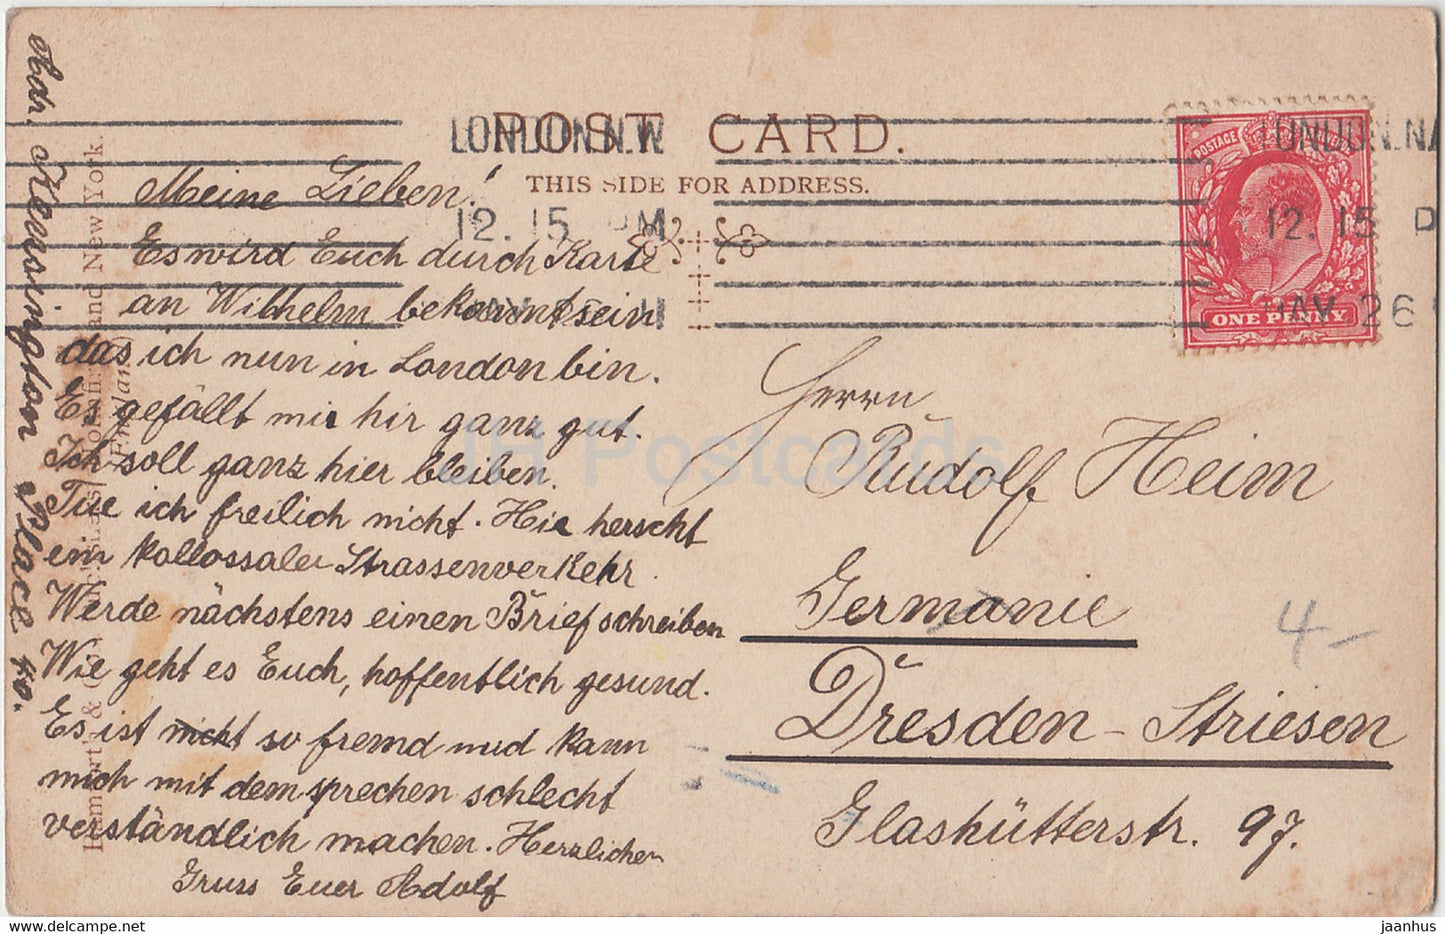 POST CARD.
THIS SIDE FOR ADDRESS.
LONDON. N.W
12. 15 PM
LONDON. N.
12. 15 P
MAY 26
POSTAGE
ONE PENNY
Meine Lieben!
Es wird Euch durch Karte
an Wilhelm bekannt sein
das ich nun in London bin.
Es gefällt mir hir ganz gut.
Ich soll ganz hier bleiben.
Tue ich freilich nicht. Hier herscht
ein kollossaler Strassenverkehr
Werde nächstens einen Brief schreiben
Wie geht es Euch, hoffentlich gesund.
Es ist nicht so fremd und kann
mich mit dem sprechen schlecht
verständlich machen. Herzlichen
Gruss Euer Adolf
Adr. Kensington Place 40.
Herrn
Rudolf Heim
Germanie
Dresden-Striesen
Glashütterstr. 97.
4-
and New York.
England
JH Postcards
delcampe.net
jaanhus